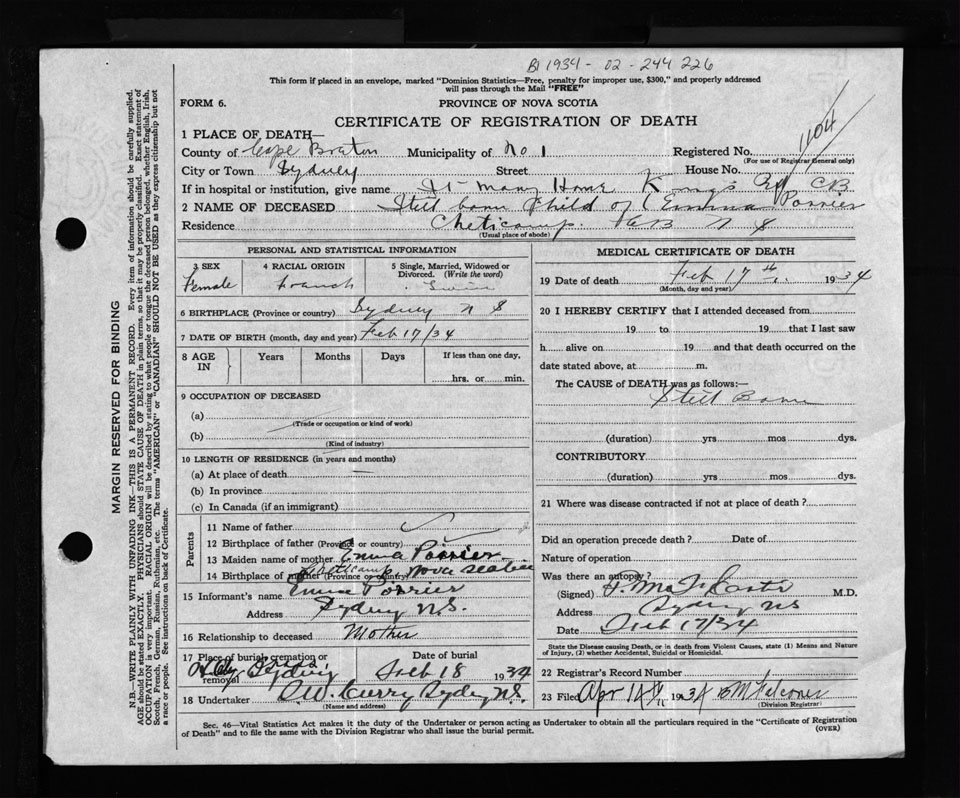 B1 1934 - 02 - 244 226
This form if placed in an envelope, marked "Dominion Statistics—Free, penalty for improper use, $300," and properly addressed
will pass through the Mail "FREE"
FORM 6.
PROVINCE OF NOVA SCOTIA
CERTIFICATE OF REGISTRATION OF DEATH
1104
1 PLACE OF DEATH—
County of Cape Breton Municipality of No 1 Registered No.
(For use of Registrar General only)
City or Town Sydney Street House No.
If in hospital or institution, give name St Mary Home Kings Rd CB
2 NAME OF DECEASED Still born Child of (Emma Poirrier
Residence Cheticamp. CB N S
(Usual place of abode)
PERSONAL AND STATISTICAL INFORMATION
3 SEX
Female
4 RACIAL ORIGIN
French
5 Single, Married, Widowed or
Divorced. (Write the word)
6 BIRTHPLACE (Province or country) Sydney N S
7 DATE OF BIRTH (month, day and year) Feb 17/34
8 AGE
IN
Years Months Days
If less than one day,
hrs. or min.
9 OCCUPATION OF DECEASED
(a)
(Trade or occupation or kind of work)
(b)
(Kind of industry)
10 LENGTH OF RESIDENCE (in years and months)
(a) At place of death
(b) In province
(c) In Canada (if an immigrant)
Parents
11 Name of father
12 Birthplace of father (Province or country)
13 Maiden name of mother Emma Poirrier
14 Birthplace of mother (Province or country) Cheticamp, Nova Scotia
15 Informant's name Emma Poirrier
Address Sydney N.S.
16 Relationship to deceased Mother
17 Place of burial, cremation or
removal Holy Cross, Sydney
Date of burial
Feb 18 1934
18 Undertaker A.W. Curry Sydney N.S.
(Name and address)
MEDICAL CERTIFICATE OF DEATH
19 Date of death Feb 17th, 1934
(Month, day and year)
20 I HEREBY CERTIFY that I attended deceased from
19 to 19 that I last saw
h alive on 19 and that death occurred on the
date stated above, at m.
The CAUSE of DEATH was as follows:—
Still Born
(duration) yrs mos dys.
CONTRIBUTORY
(duration) yrs mos dys.
21 Where was disease contracted if not at place of death?
Did an operation precede death? Date of
Nature of operation
Was there an autopsy?
(Signed) M.D.
Address Sydney NS
Date Feb 17/34
State the Disease causing Death, or in death from Violent Causes, state (1) Means and Nature
of Injury, (2) whether Accidental, Suicidal or Homicidal.
22 Registrar's Record Number
23 Filed Apr 14th 1934
(Division Registrar)
Sec. 46—Vital Statistics Act makes it the duty of the Undertaker or person acting as Undertaker to obtain all the particulars required in the "Certificate of Registration
of Death" and to file the same with the Division Registrar who shall issue the burial permit.
(OVER)
MARGIN RESERVED FOR BINDING
N.B.—WRITE PLAINLY WITH UNFADING INK—THIS IS A PERMANENT RECORD. Every item of information should be carefully supplied.
AGE should be stated EXACTLY. PHYSICIANS should STATE CAUSE OF DEATH in plain terms, so that it may be properly classified. Exact statement of
OCCUPATION is very important. RACIAL ORIGIN will be described by stating to what people or tongue the deceased person belonged, whether English, Irish,
Scotch, French, German, Russian, Ruthenian, etc. The terms "AMERICAN" or "CANADIAN" SHOULD NOT BE USED as they express citizenship but not
a race or people. See instructions on back of Certificate.